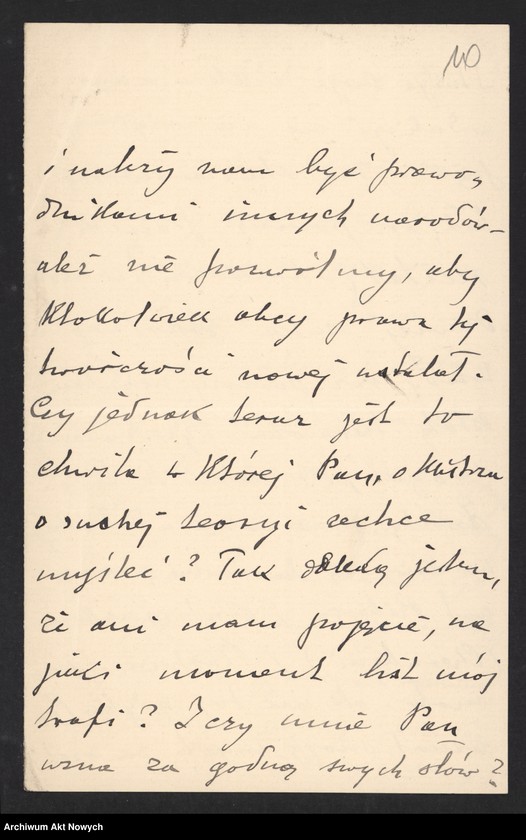 10
i należy nam być przewo„
dnikami innych narodów –
ależ nie pozwólmy, aby
ktokolwiek obcy prawa tej
twórczości nowej ustalał.
Czy jednak teraz jest to
chwila w której Pan, o Mistrzu
o suchej teoryi zechce
myśleć? Tak daleką jestem,
że ani mam pojęcie, na
jaki moment list mój
trafi? I czy mnie Pan
uzna za godną swych słów?
Archiwum Akt Nowych